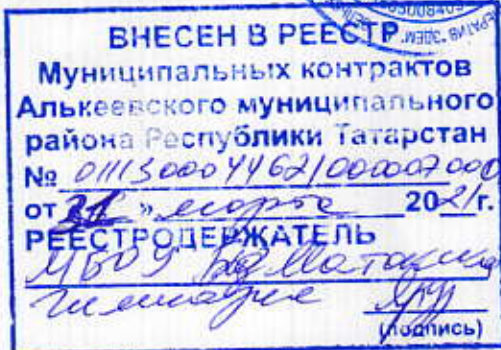 ВНЕСЕН В РЕЕСТР
Муниципальных контрактов
Алькеевского муниципального
района Республики Татарстан
№ 0111500044621000007000
от 31 » марта 2021г.
РЕЕСТРОДЕРЖАТЕЛЬ
МБОУ
гимназия
(подпись)